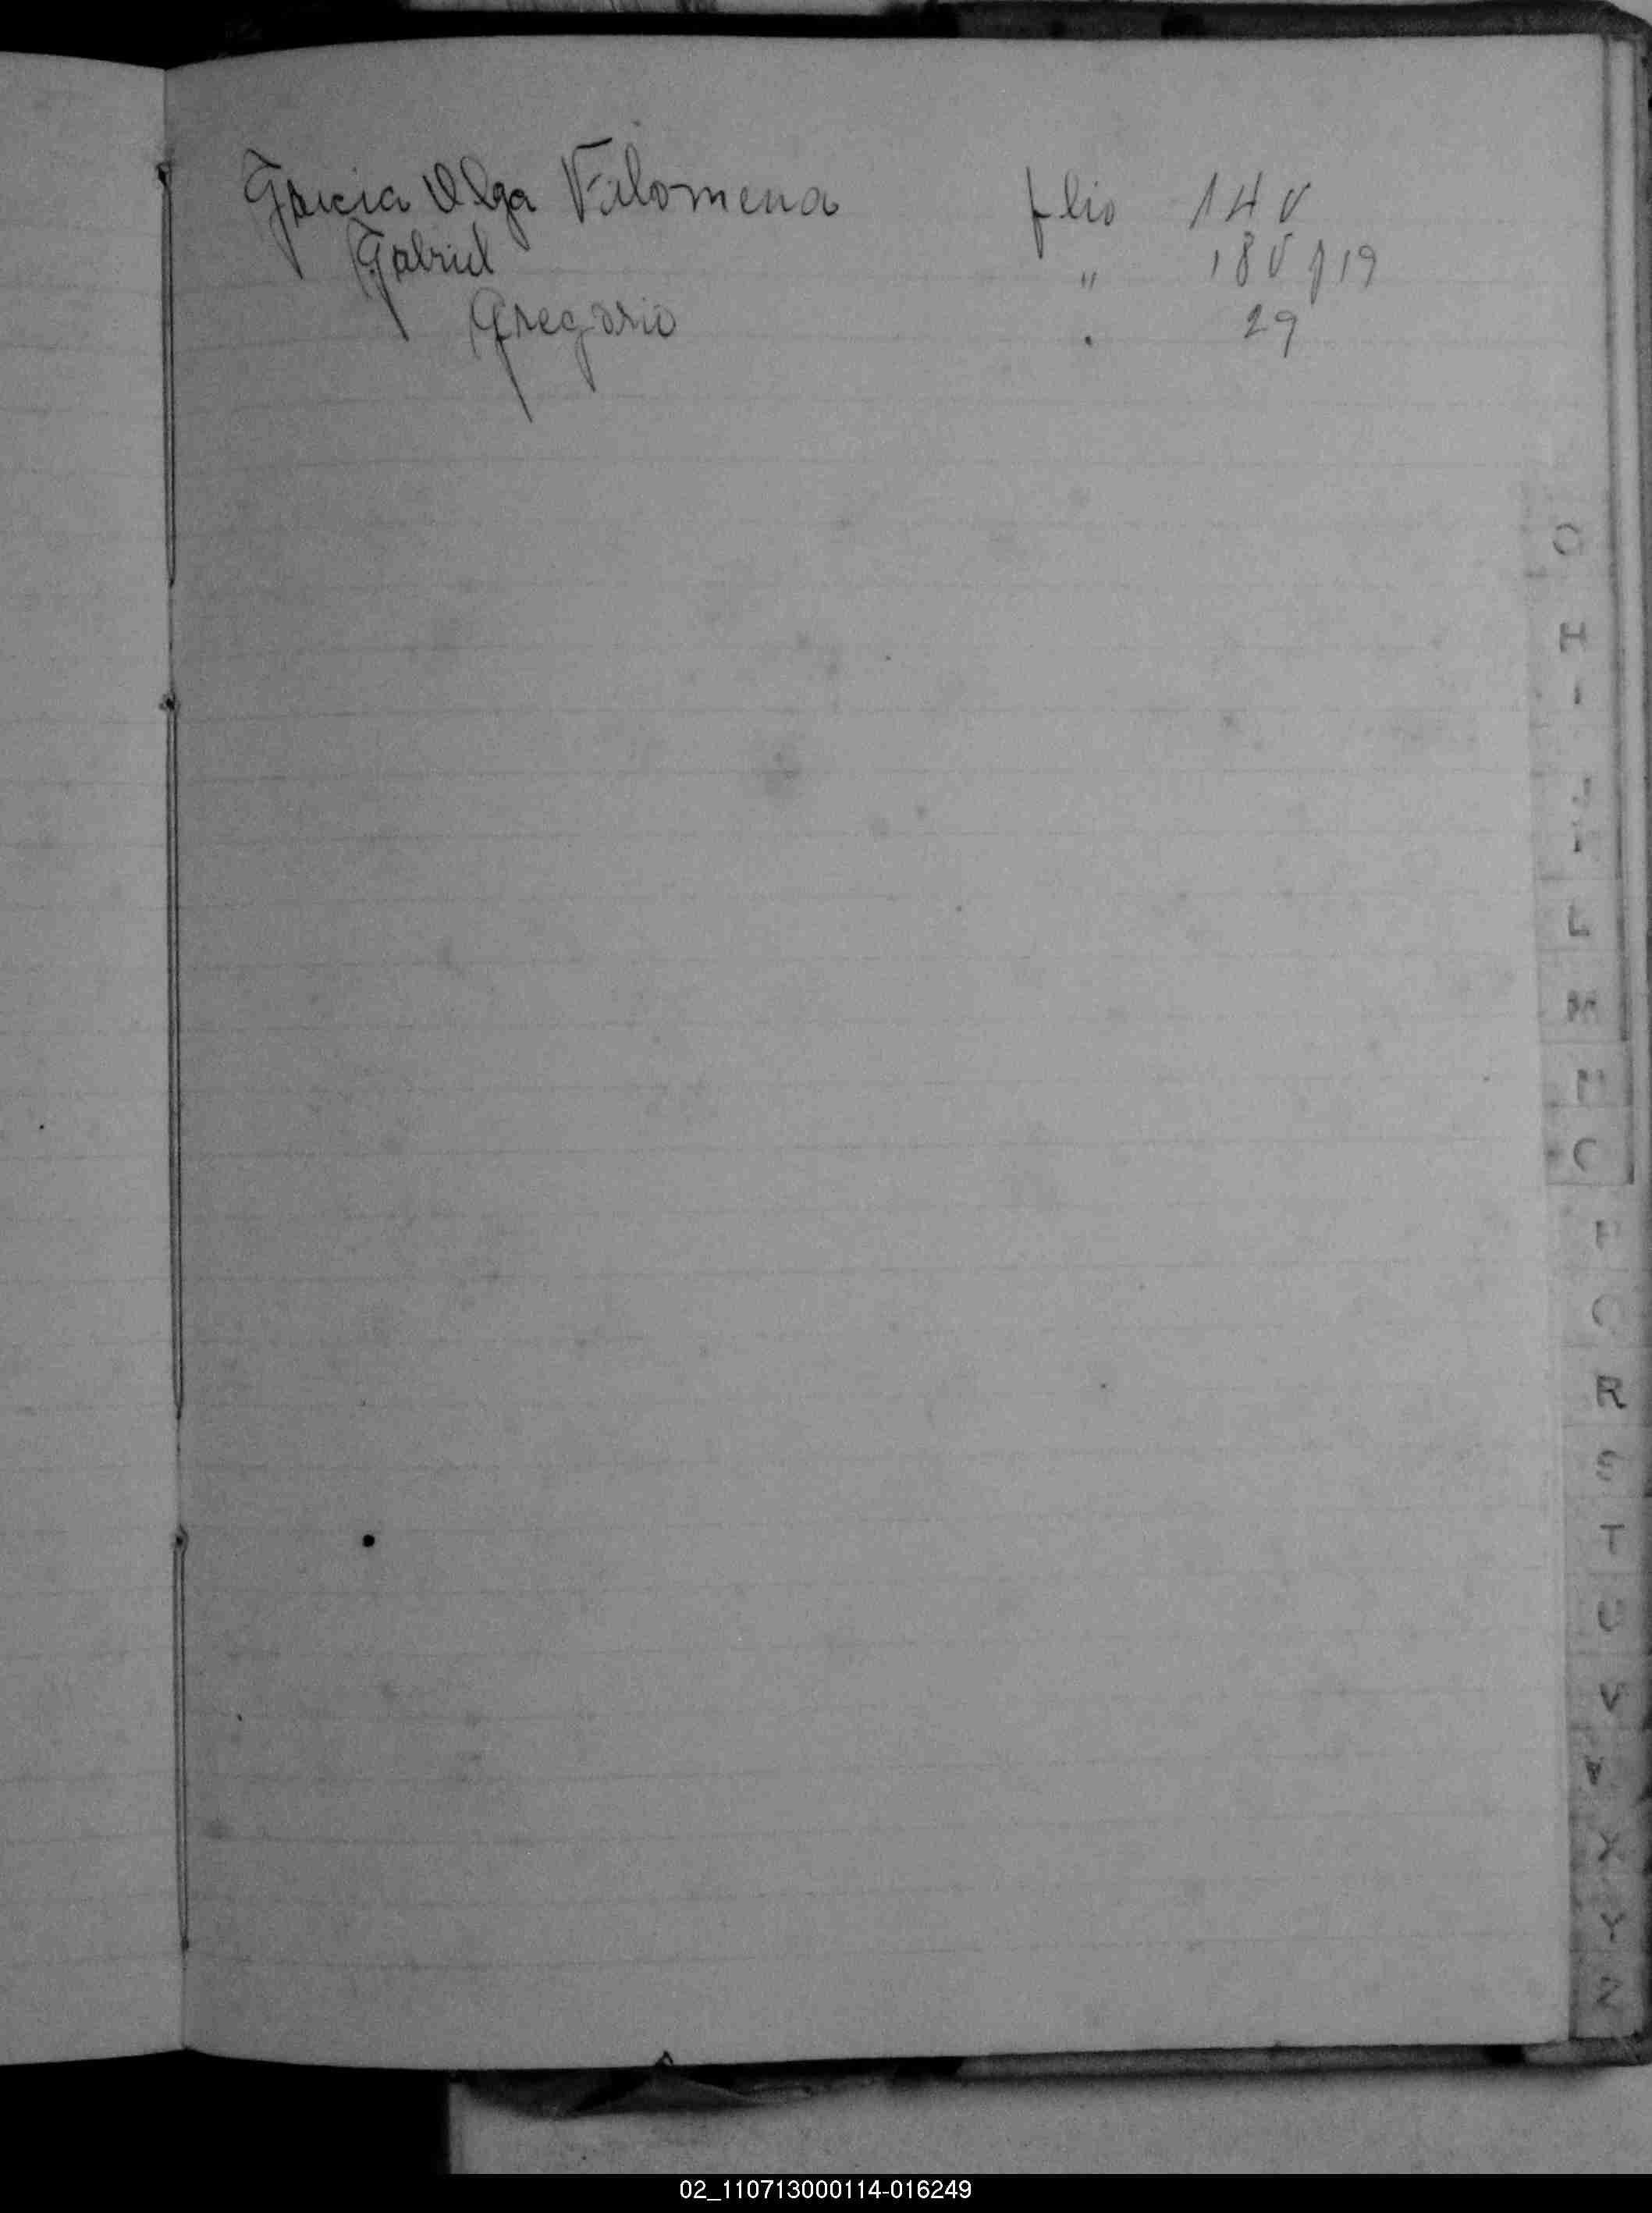 Garcia Olga Filomena flio 14 V
Gabriel " 18 V y 19
Gregorio " 29
G
H
I
J
L
M
N
O
P
Q
R
S
T
U
V
X
Y
Z
02_110713000114-016249